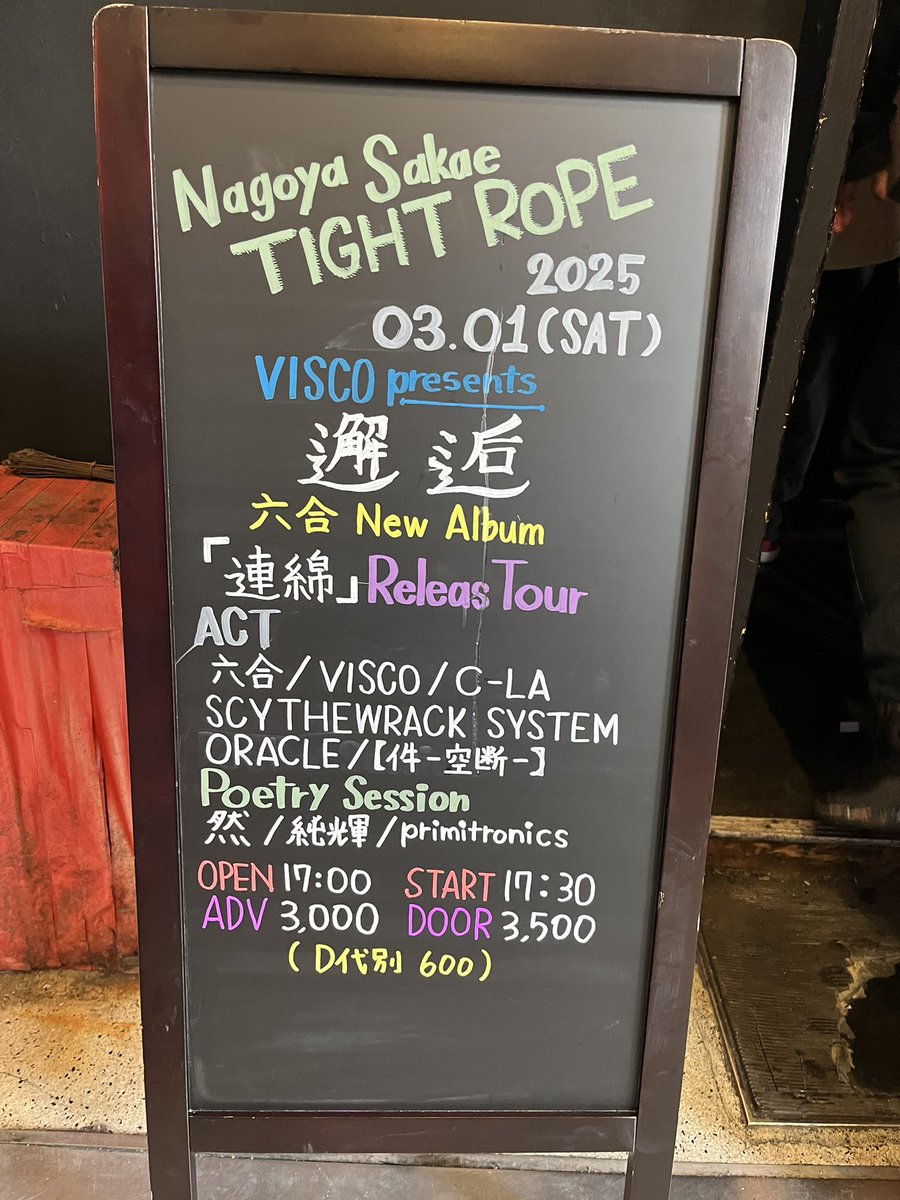 Nagoya Sakae
TIGHT ROPE
2025
03.01(SAT)
VISCO presents
邂逅
六合 New Album
「連綿」Releas Tour
ACT
六合/VISCO/C-LA
SCYTHEWRACK SYSTEM
ORACLE/【件-空断-】
Poetry Session
然/純輝/primitronics
OPEN 17:00 START 17:30
ADV 3,000 DOOR 3,500
(D代別 600)